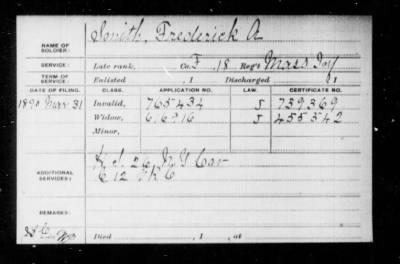 NAME OF SOLDIER: Smith, Frederick A
SERVICE: Late rank, Co. F, 18 Reg't Mass Inf
TERM OF SERVICE: Enlisted , 1 Discharged , 1
DATE OF FILING. CLASS. APPLICATION NO. LAW. CERTIFICATE NO.
1890 Mar 31 Invalid, 765434 J 739369
Widow, 616916 J 455542
Minor,
ADDITIONAL SERVICES: K I, 26 N Y Cav
E 12 V R C
REMARKS:
Died , 1 , at